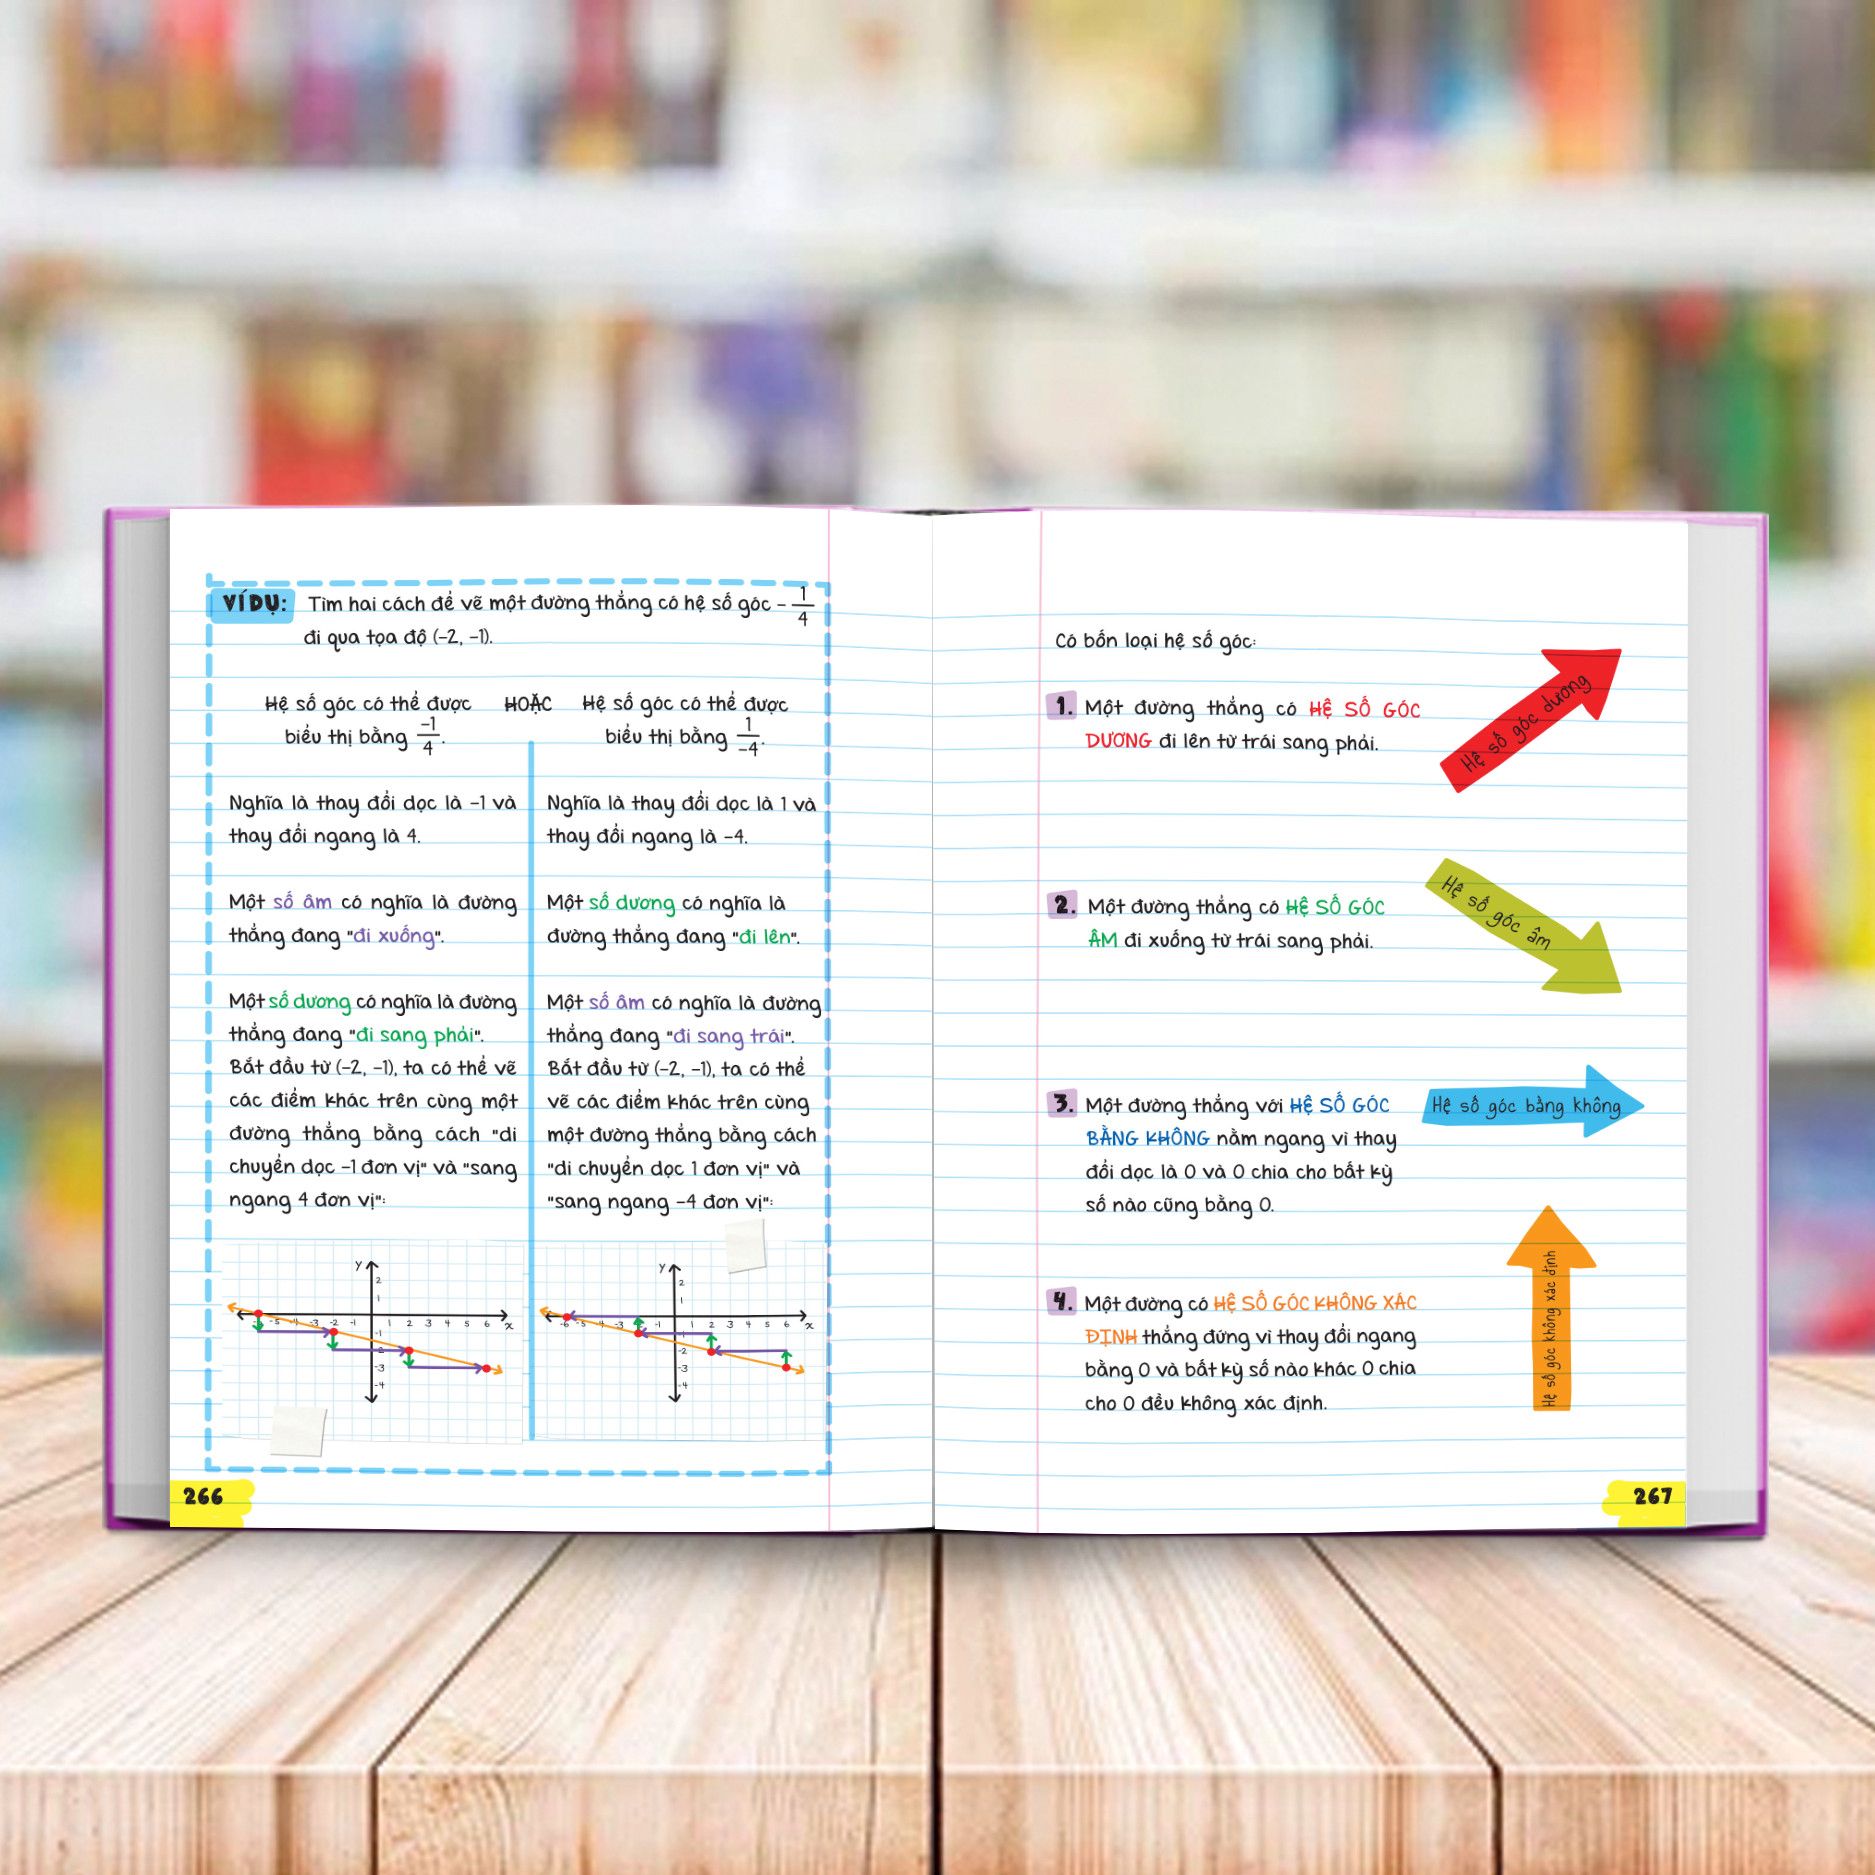 VÍ DỤ: Tìm hai cách để vẽ một đường thẳng có hệ số góc -1/4
đi qua tọa độ (-2, -1).
Hệ số góc có thể được
biểu thị bằng -1/4.
HOẶC
Hệ số góc có thể được
biểu thị bằng 1/-4.
Nghĩa là thay đổi dọc là -1 và
thay đổi ngang là 4.
Một số âm có nghĩa là đường
thẳng đang "đi xuống".
Một số dương có nghĩa là đường
thẳng đang "đi sang phải".
Bắt đầu từ (-2, -1), ta có thể vẽ
các điểm khác trên cùng một
đường thẳng bằng cách "di
chuyển dọc -1 đơn vị" và "sang
ngang 4 đơn vị":
Nghĩa là thay đổi dọc là 1 và
thay đổi ngang là -4.
Một số dương có nghĩa là
đường thẳng đang "đi lên".
Một số âm có nghĩa là đường
thẳng đang "đi sang trái".
Bắt đầu từ (-2, -1), ta có thể
vẽ các điểm khác trên cùng
một đường thẳng bằng cách
"di chuyển dọc 1 đơn vị" và
"sang ngang -4 đơn vị":
y
2
1
-5 -4 -3 -2 -1 1 2 3 4 5 6 x
-1
-2
-3
-4
y
2
1
-6 -5 -4 -3 -1 1 2 3 4 5 6 x
-2
-3
-4
266
Có bốn loại hệ số góc:
1. Một đường thẳng có HỆ SỐ GÓC
DƯƠNG đi lên từ trái sang phải.
Hệ số góc dương
2. Một đường thẳng có HỆ SỐ GÓC
ÂM đi xuống từ trái sang phải.
Hệ số góc âm
3. Một đường thẳng với HỆ SỐ GÓC
BẰNG KHÔNG nằm ngang vì thay
đổi dọc là 0 và 0 chia cho bất kỳ
số nào cũng bằng 0.
Hệ số góc bằng không
4. Một đường có HỆ SỐ GÓC KHÔNG XÁC
ĐỊNH thẳng đứng vì thay đổi ngang
bằng 0 và bất kỳ số nào khác 0 chia
cho 0 đều không xác định.
Hệ số góc không xác định
267